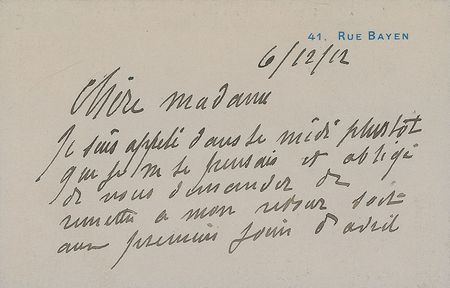 41. RUE BAYEN
6/12/12
Chère madame
Je suis appelé dans le midi plustôt
que je ne le pensais et obligé
de vous demander de
remettre a mon retour soit
aux premiers jours d'avril